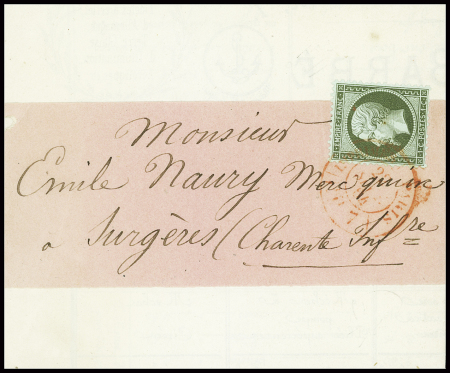 EMPIRE FRANC.
POSTES
Monsieur
Emile Naury
a Surgères (Charente Infre